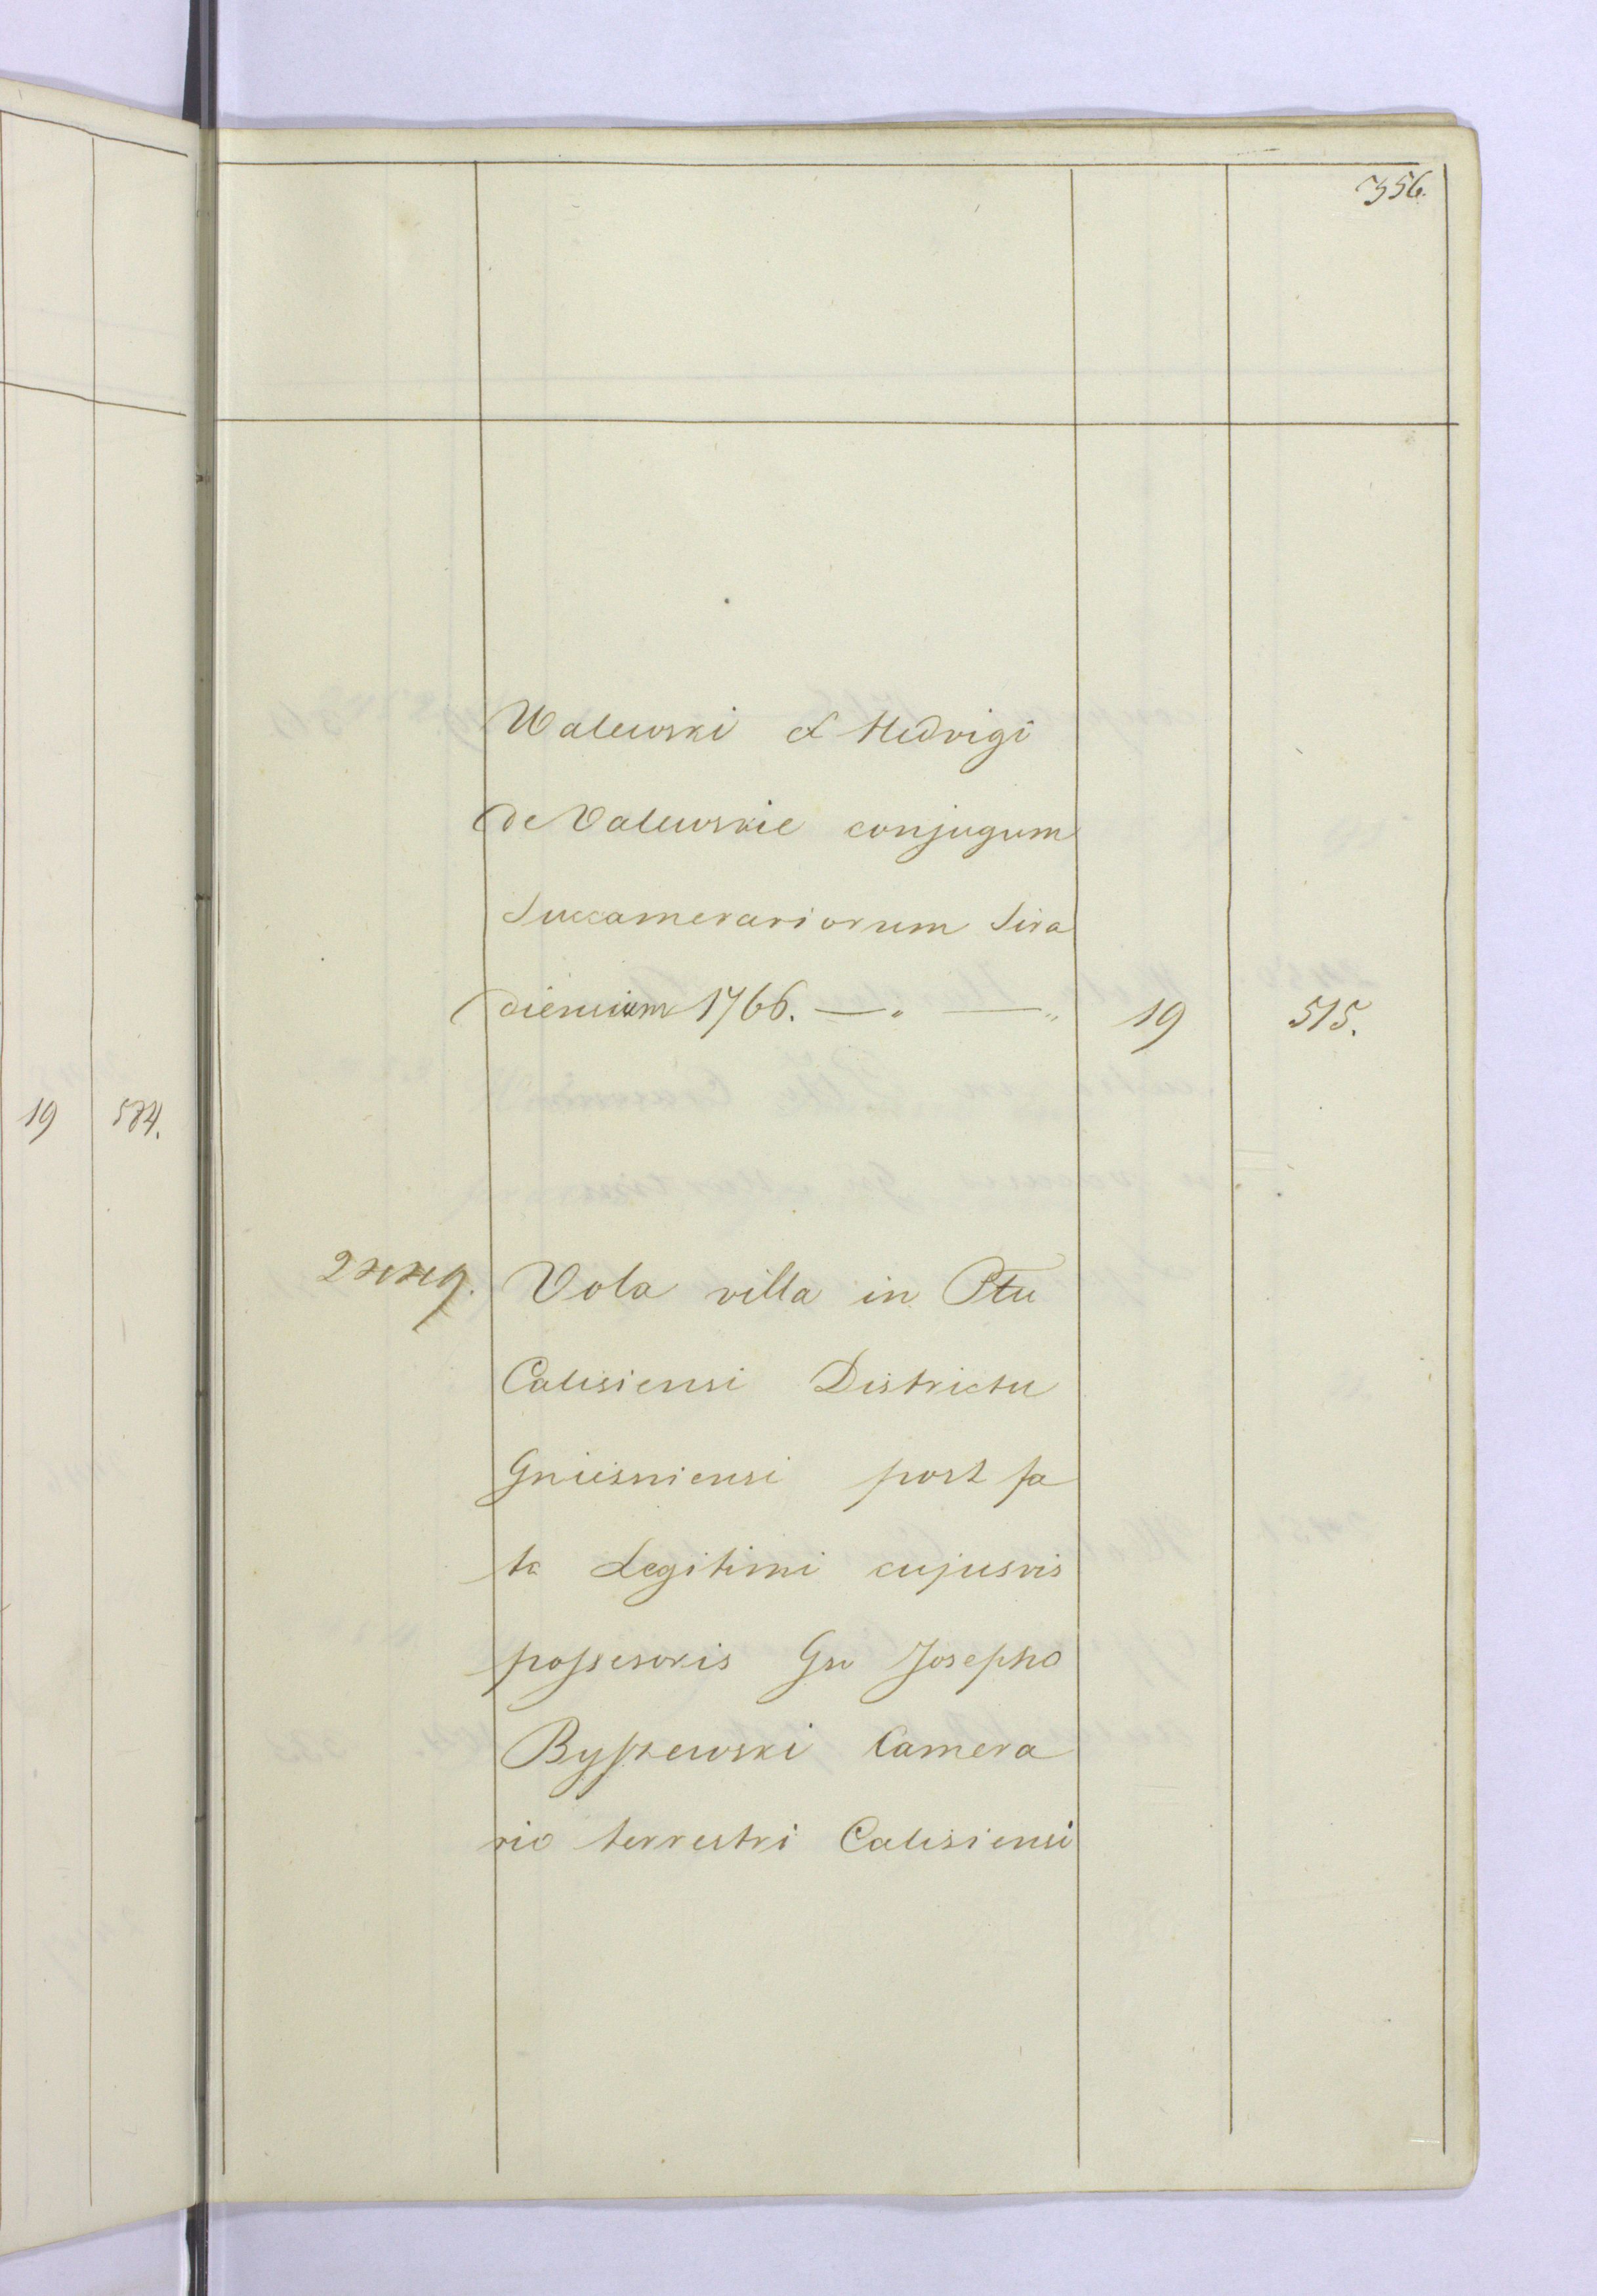 356.
Walewski et Hedvigi
de Valewskie conjugum
Succamerariorum Sira
diensium 1766. — . — „ 19 515.
19 574.
Vola villa in Ptu
Calisiensi Districtu
Gniesniensi post fa
ta Legitimi cujusvis
possesoris Gso Josepho
Byszewski Camera
rio terrestri Calisiensi